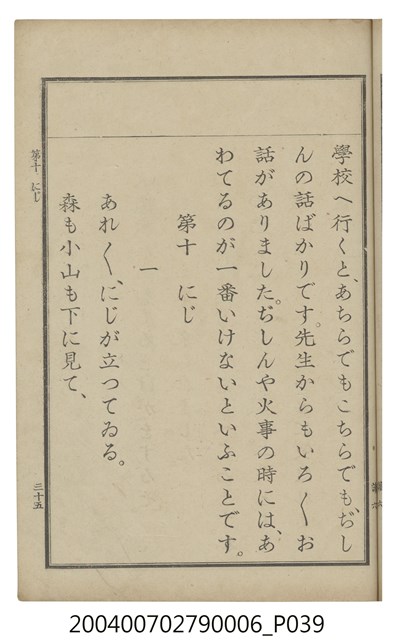 學校へ行くと、あちらでもこちらでも、ぢし
んの話ばかりです。先生からもいろ〱お
話がありました。ぢしんや火事の時には、あ
わてるのが一番いけないといふことです。
第十 にじ
一
あれ〱、にじが立つてゐる。
森も小山も下に見て、
第十 にじ
三十五
200400702790006_P039